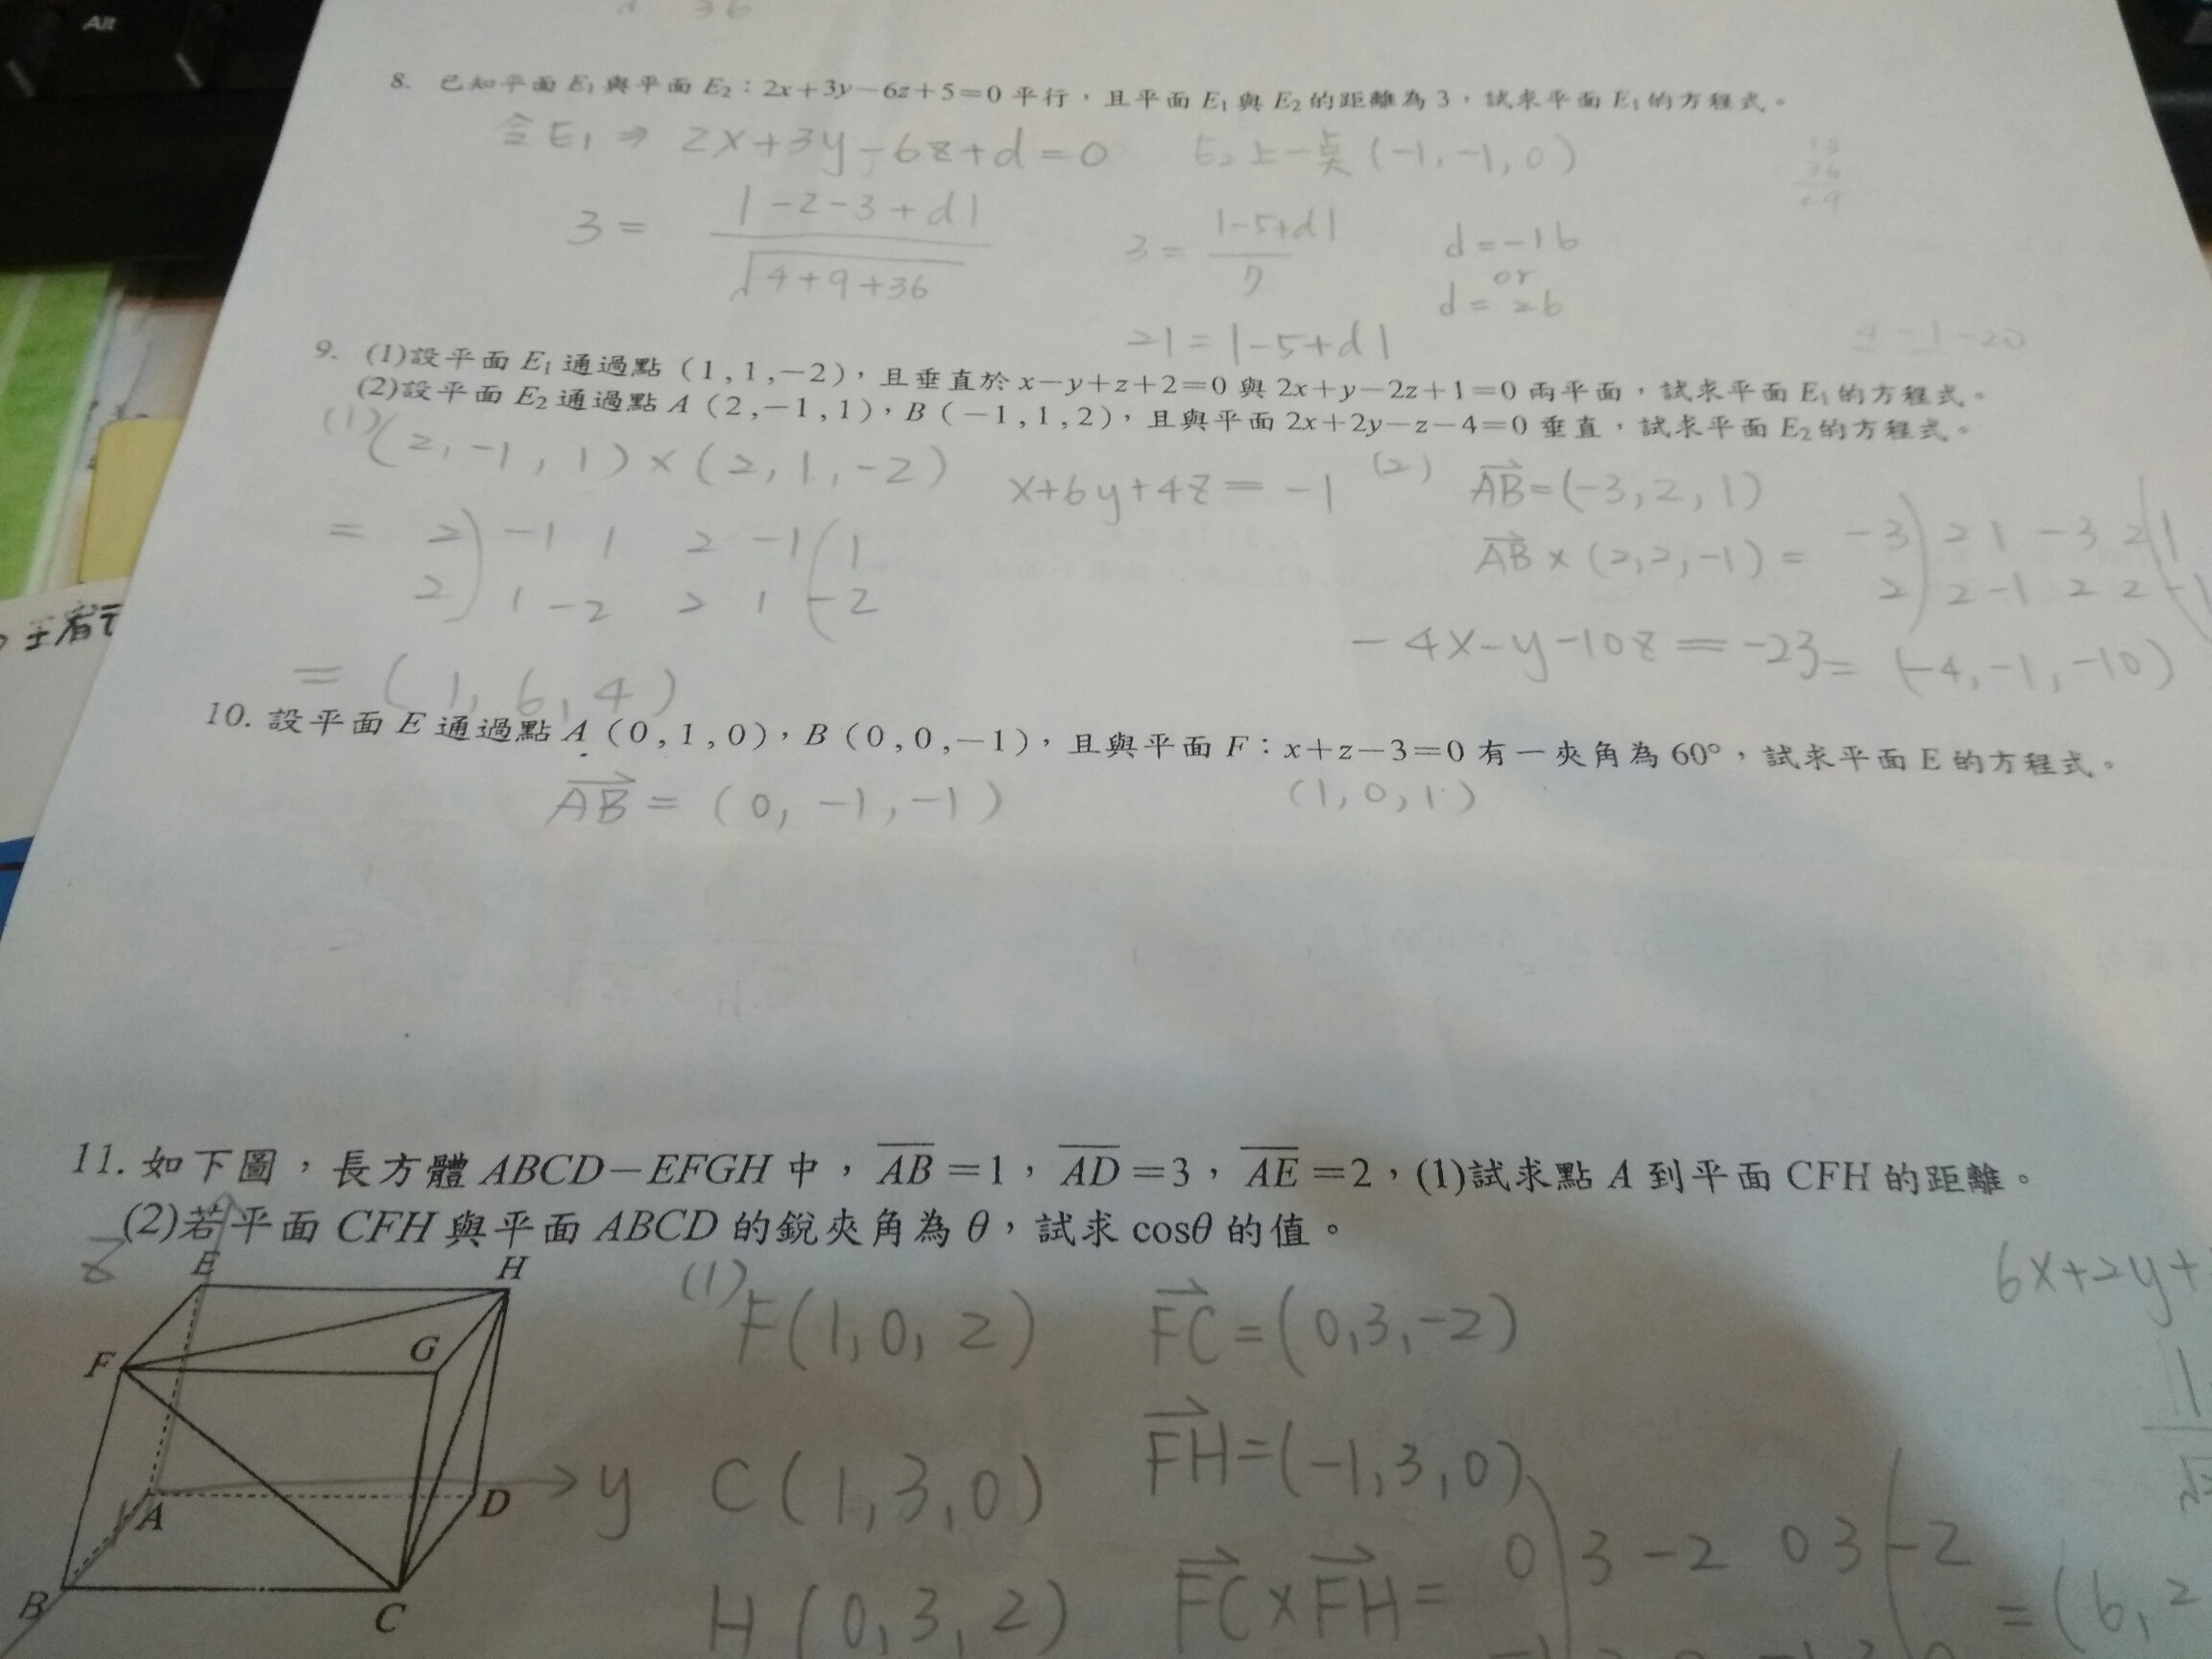 Alt
36
8. 已知平面 E₁與平面 E₂：2x+3y−6z+5=0 平行，且平面 E₁與 E₂的距離為 3，試求平面 E₁的方程式。
令E₁ ⇒ 2x+3y-6z+d=0 E₂上一点(-1,-1,0)
3= |-2-3+d| / √4+9+36
3= |-5+d| / 7
d=-16
or
d=26
21=|-5+d|
9. (1)設平面 E₁通過點（1,1,−2），且垂直於 x−y+z+2=0 與 2x+y−2z+1=0 兩平面，試求平面 E₁的方程式。
(2)設平面 E₂通過點 A（2,−1,1），B（−1,1,2），且與平面 2x+2y−z−4=0 垂直，試求平面 E₂的方程式。
(1) (2,-1,1)×(2,1,-2) x+6y+4z=-1
= 2) -1 1 2 -1 (1
2) 1 -2 2 1 (-2
= (1,6,4)
(2) AB=(-3,2,1)
AB×(2,2,-1)= -3) 2 1 -3 2 (1
2) 2 -1 2 2 (-1
-4x-y-10z=-23 = (-4,-1,-10)
10. 設平面 E 通過點 A（0,1,0），B（0,0,−1），且與平面 F：x+z−3=0 有一夾角為 60°，試求平面 E 的方程式。
AB=(0,-1,-1) (1,0,1)
11. 如下圖，長方體 ABCD−EFGH 中，AB=1，AD=3，AE=2，(1)試求點 A 到平面 CFH 的距離。
(2)若平面 CFH 與平面 ABCD 的銳夾角為 θ，試求 cosθ 的值。
z
E
H
F
G
A
D
B
C
y
(1) F(1,0,2) FC=(0,3,-2)
6x+2y+
C(1,3,0) FH=(-1,3,0)
H(0,3,2) FC×FH= 0) 3 -2 0 3 (-2
=(6,2